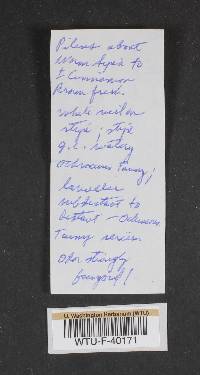 Pileus about
warm sepia to
L Cinnamon
Brown fresh.
white veil on
stipe; stipe
g.c. watery
ochraceous Tawny;
lamellae
subdistant to
distant - Ochraceous
Tawny
Odor strongly
fungoid!
U. Washington Herbarium (WTU)
WTU-F-40171